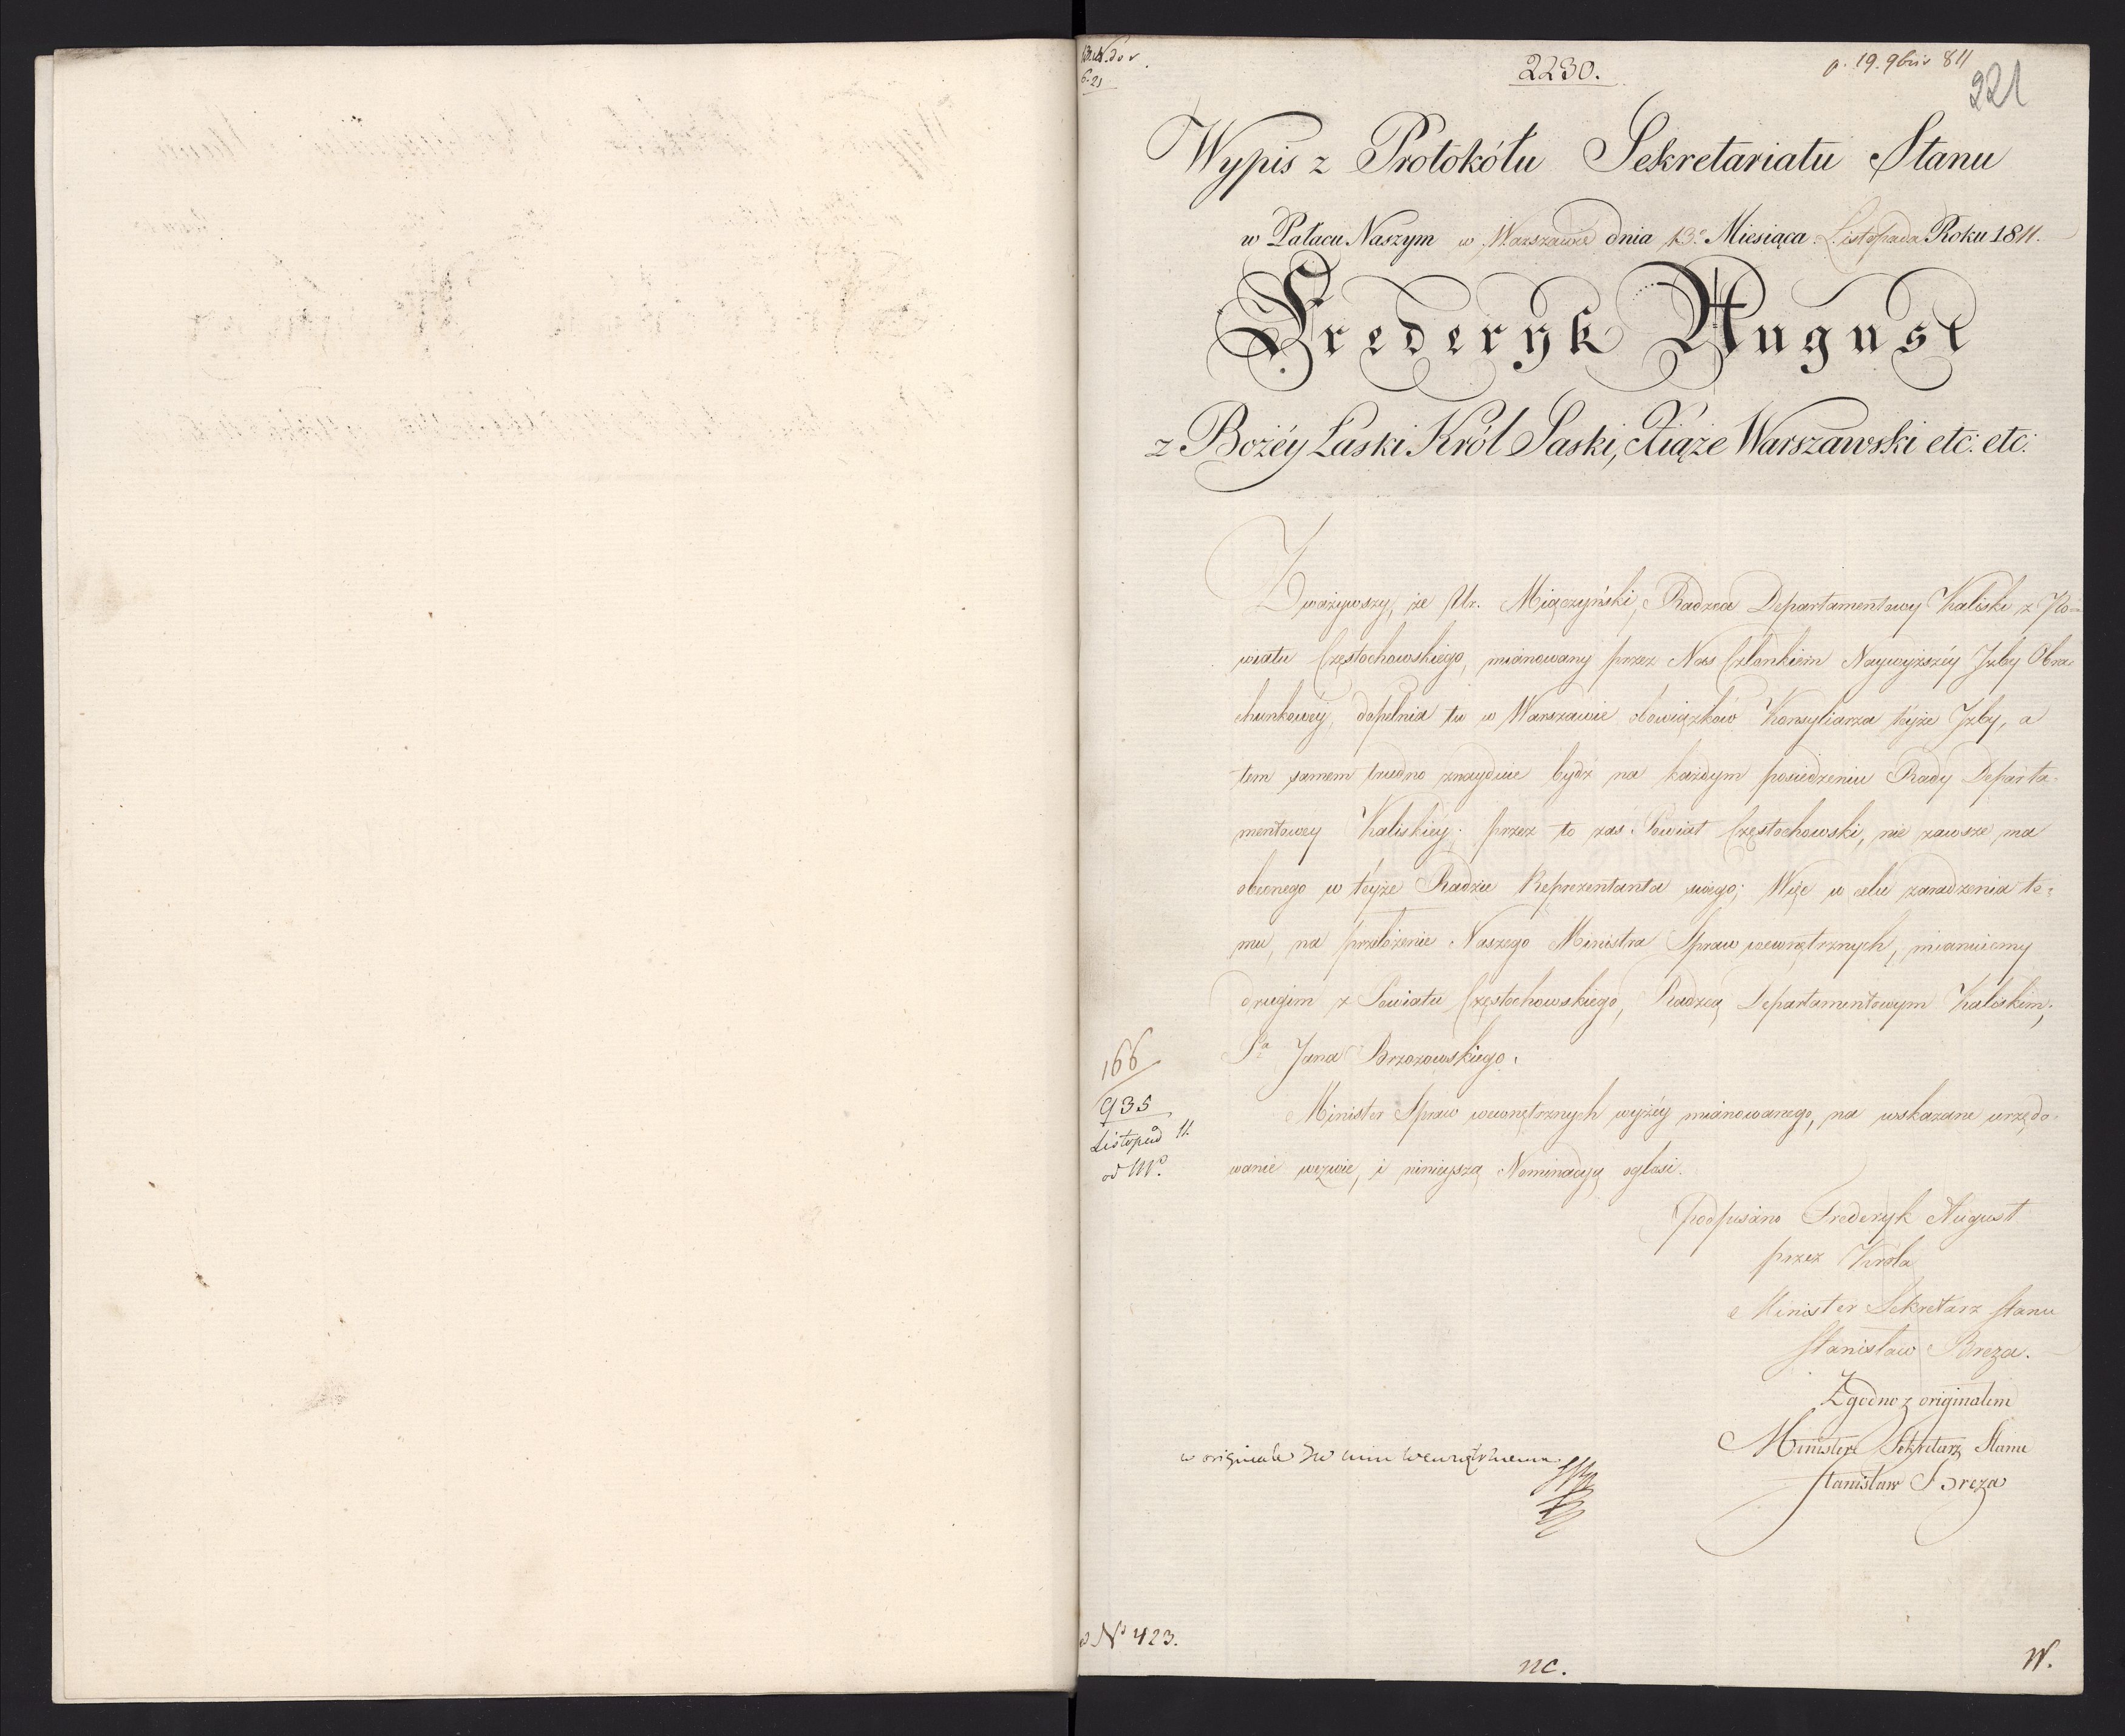 2230.
p. 19. 9bris 811
221
Wypis z Protokółu Sekretariatu Stanu
w Pałacu Naszym w Warszawie dnia 13º Miesiąca Listopada Roku 1811.
Frederyk August
z Bożéy Łaski Król Saski, Xiąże Warszawski etc: etc:
Zważywszy, że Ur. Miączyński, Radzca Departamentowy Kaliski z Po-
wiatu Częstochowskiego, mianowany przez Nas Członkiem Naywyższéy Izby Obra-
chunkowey, dopełnia tu w Warszawie obowiązków Konsyliarza téyże Izby, a
tem samem trudno znayduie bydź na każdym posiedzeniu Rady Departa-
mentowey Kaliskiey; przez to zaś Powiat Częstochowski, nie zawsze ma
obecnego w téyże Radzie Reprezentanta swego; Więc w celu zaradzenia te-
mu, na przełożenie Naszego Ministra Spraw wewnętrznych, mianuiemy
drugim z Powiatu Częstochowskiego, Radzcą Departamentowym Kaliskim,
Pa Jana Brzozowskiego.
Minister Spraw wewnętrznych wyżéy mianowanego, na wskazane urzędo-
wanie wezwie, i ninieyszą Nominacyą ogłosi.
166
935
Listopad 11.
podpisano Frederyk August
przez Króla
Minister Sekretarz Stanu
Stanisław Breza.
Zgodno z originałem
Minister Sekretarz Stanu
Stanisław Breza
w originale
Nº 423.
nc.
W.